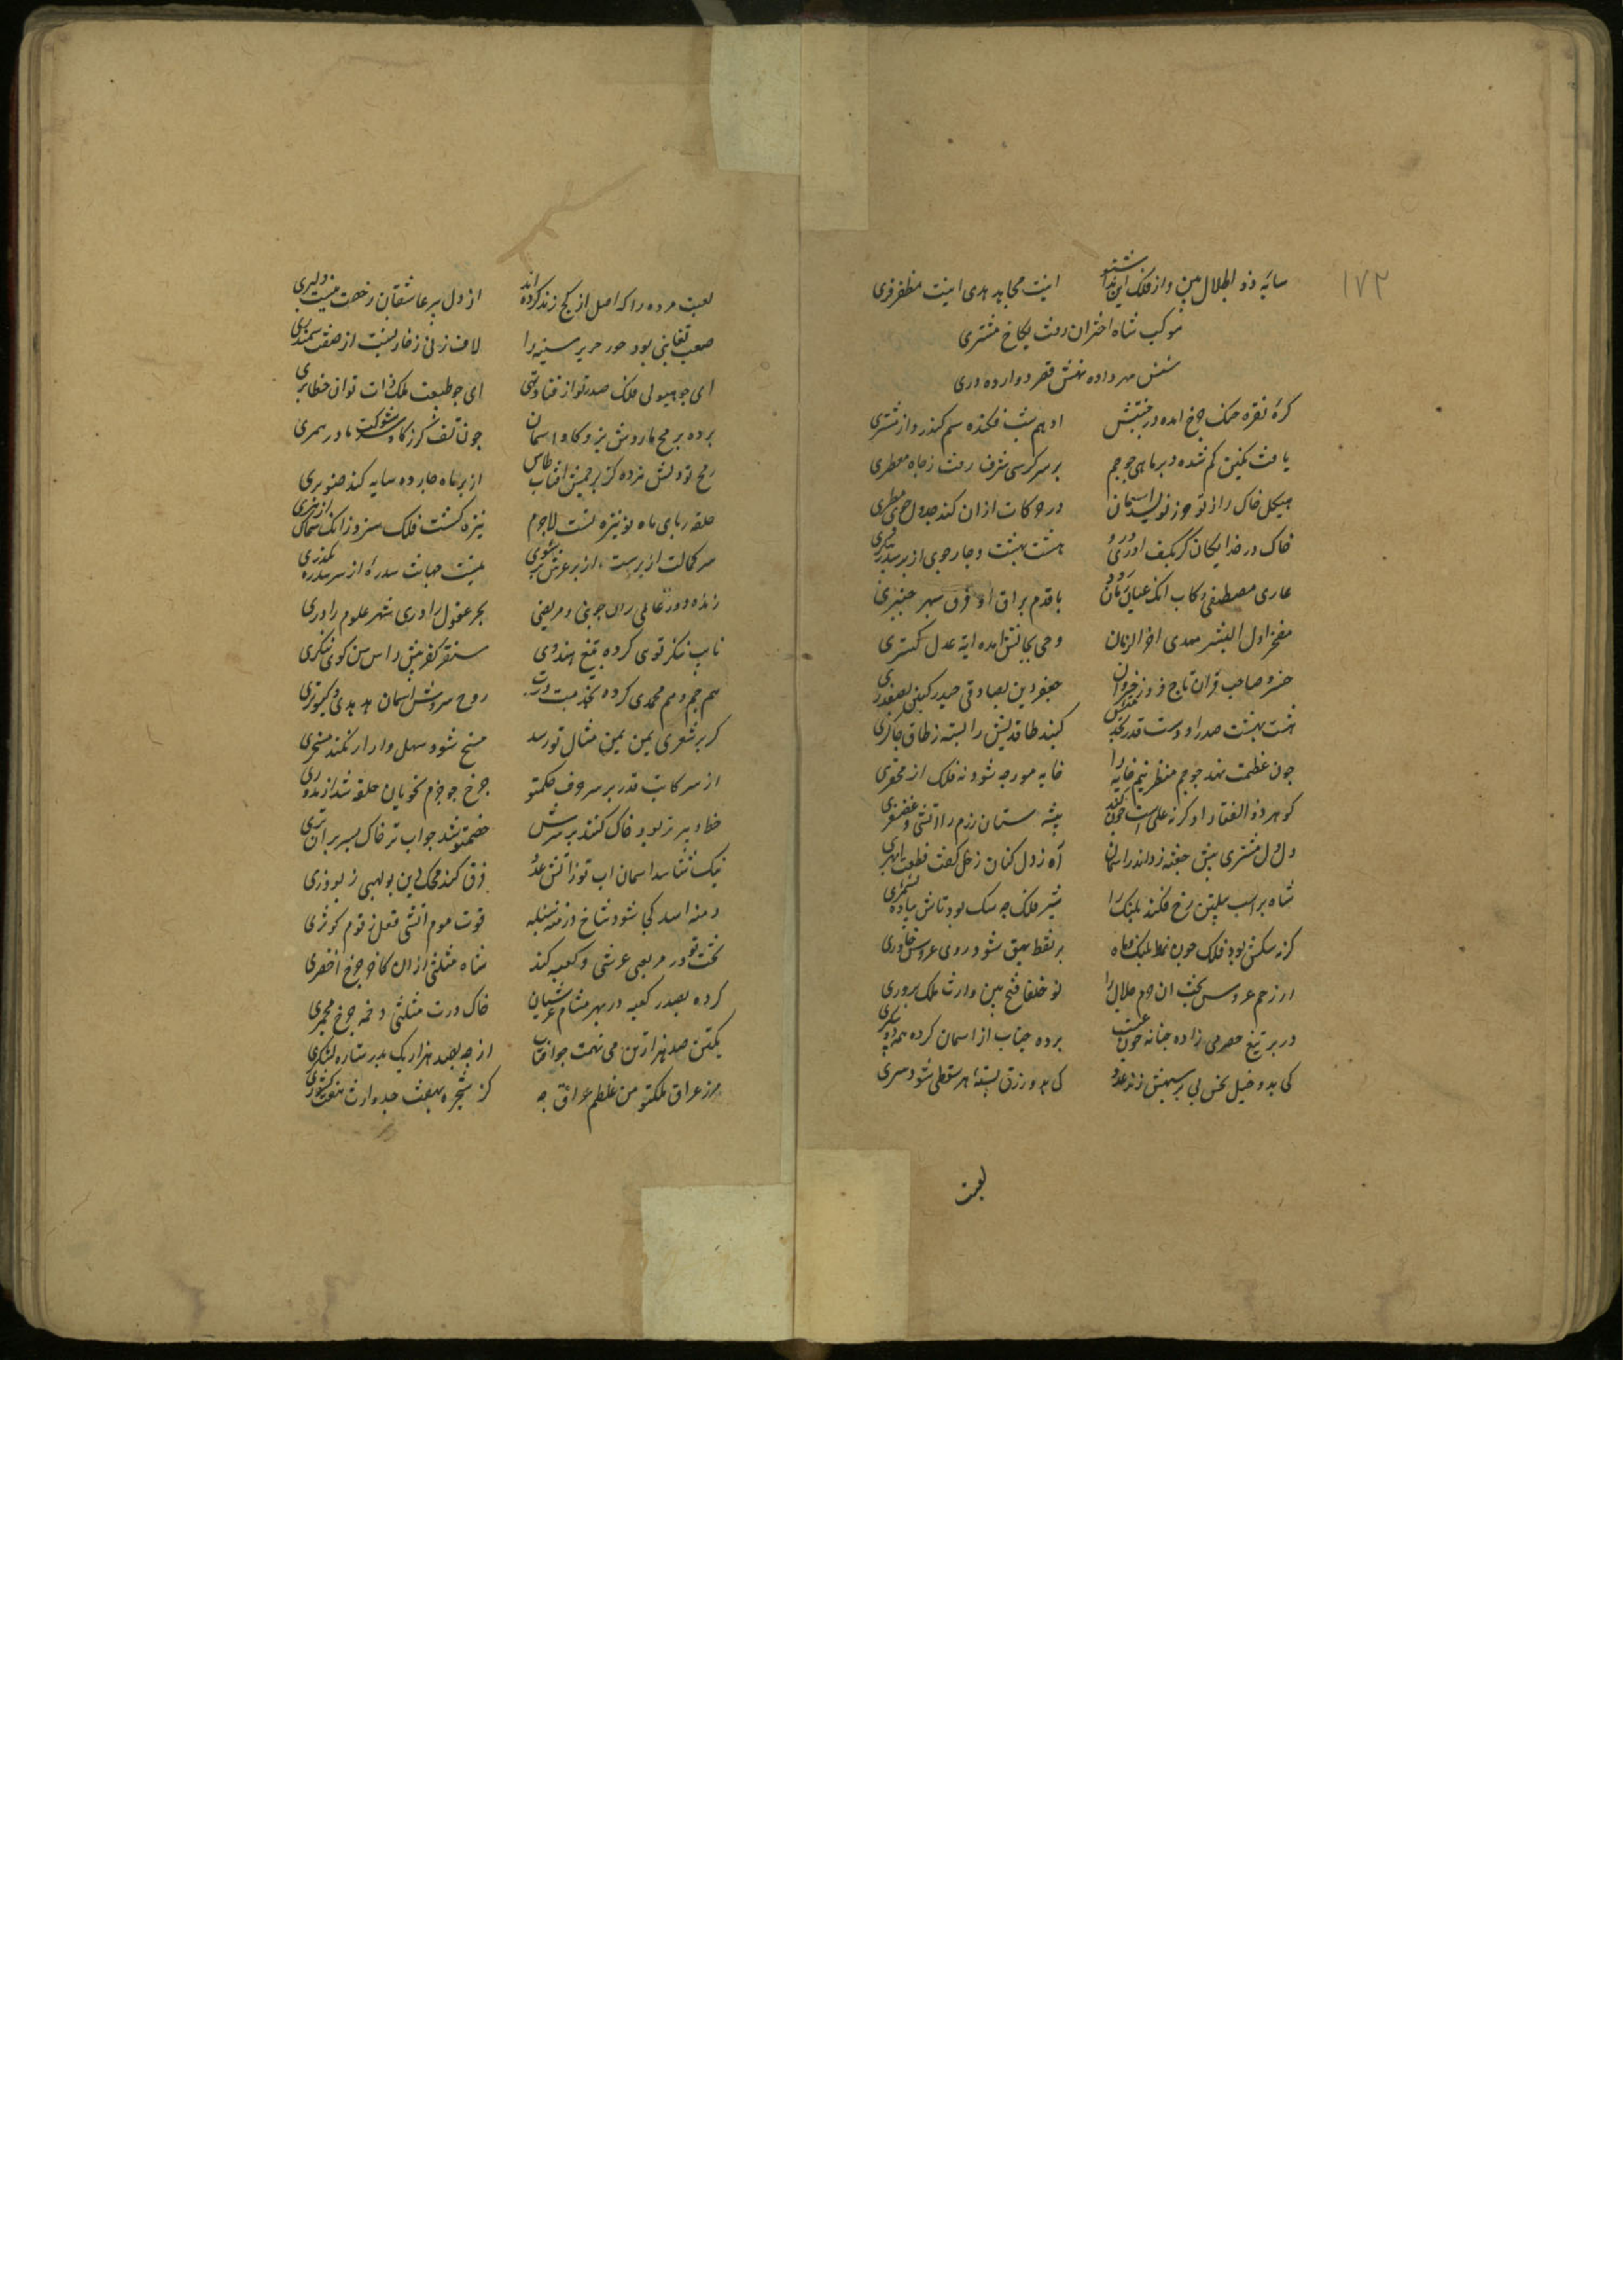 ۱۷۲
سایه ذو الجلال بین واز فلک این ندا شنو اینت مجاهد هدی اینت مظفر فری
موکب شاه اختران رفت بکاخ مشتری
شش مهر داده نهش قصر دوازده دری
کره نقره خنک چرخ امده در جنبش ادهم شب فکنده سم کندرو از مشتری
یافت نکین کم شده در بر ماهی چو جم بر سر کرسی شرف رفت زجاه مضطری
هیکل خاک را زنو حرز نویسد اسمان در حرکات ازان کند جدول جوی مسطری
خاک در خدایکان کر بکف اوری درو هشت بهشت و چار جوی از بر سدره بنکری
غازی مصطفی رکاب انک عنان زنان رود با قدم براق او فرق سپهر چنبری
مفخر اول البشر مهدی اخر الزمان وحی بجانش امده ایه عدل کستری
خسرو صاحب قران تاج فروز خسروان جعفر دین بصادقی حیدر کین بصفدری
هشت بهشت صدر او دست قدر کنبد طاقدیس را بسته زطاق چاکری
چون عظمت نهد چو جم منظر نیم خایه را خایه مورچه شود نه فلک از محقری
کوهر ذو الفقار او کرنه علیست چون کند بیشه ستان رزم را اتشی و غضنفری
دلدل مشتری پیش جفته زد اندر اسمان آه زدل کنان زحل کفت قطعت ابهری
شاه بر اسب پیلتن رخ فکند پلنک را شیر فلک چه سک بود تاش پیاده نشمری
کرنه سکش بود فلک چون نمط پلنک و ماه پر نقط بهق شود روی عروس خاوری
از رحم عروس بخت ان حرم جلال را نو خلفا فتح بین وارث ملک پروری
در بر تیغ حصرمی زاده چنانه عنب چون برده جناب از اسمان کرده همه
کی بدو خیل نحس پی بر سپهش زند عدو کی بدو رزق بسته هر سقطی شود سری
لعبت
لعبت مرده را که اصل از کچ زنده کرده اند از دل پر عاشقان رخصت نیست دلبری
صعب تغابنی بود حور حریر سینه را لاف زنی زخار پشت از صفت سمندری
ای چو هیولی فلک صدر تو از فنا تهی ای چو طبیعت ملک ذات تو از خطا بری
برده برمح ماروش نیرو کاو اسمان چون تف کرز کاوسر شوکت مار حمیری
رمح تو بر همین افتاب طاس از بر ماه چارده سایه کند صنوبری
حلقه ربای ماه نو نیزه تست لاجرم نیزه کشت فلک سزد زانک سماک ازهری
سر کمالت از برست از بر عرش بشنوی نیست جهانت سدره از سر سدره بکذری
زنده دو در عالمی زان چونی و مرتضی بحر عقول را دری شهر علوم را دری
نایب تنکری توی کرده بتیغ هندوی سنقر کفر پیش را سن سن کوی تنکری
هم جم و هم محمدی کرده بخدمت درت روح سروش اسمان هدهدی و کبوتری
کر بر شعری یمن یمن مثال تو رسد مسخ شود سهیل وار ار نکند مسخری
از سر کاتب قدر بر سر حرف حکم تو چرخ چو جزم نحویان حلقه شد از مدوری
خط دبیر تر بود خاک کنند بر سرش خصم تو شد چو اب تر خاک بسر بر ان تری
نیک شناسد اسمان اب تو زاتش عدو فرق کند محک دین بولهبی زبوذری
دمنه اسد کی شود شاخ درمنه سنبله قوت موم اتشی فعل زقوم کوثری
تخت تو در مربعی عرشی و کعبه کند شاه مثلثی ازان کاخر چرخ اخضری
کرده بصدر کعبه در بهر مشام عرشیان خاک درت مثلثی دخمه چرخ مجمری
یکتن صد هزار تن می نهمت چو افتاب از چه بصد هزار یک بدر ستاره لشکری
مرز عراق ملک تو من غلطم عراق چه کز شجره بهفت جد وارث هفت کشوری